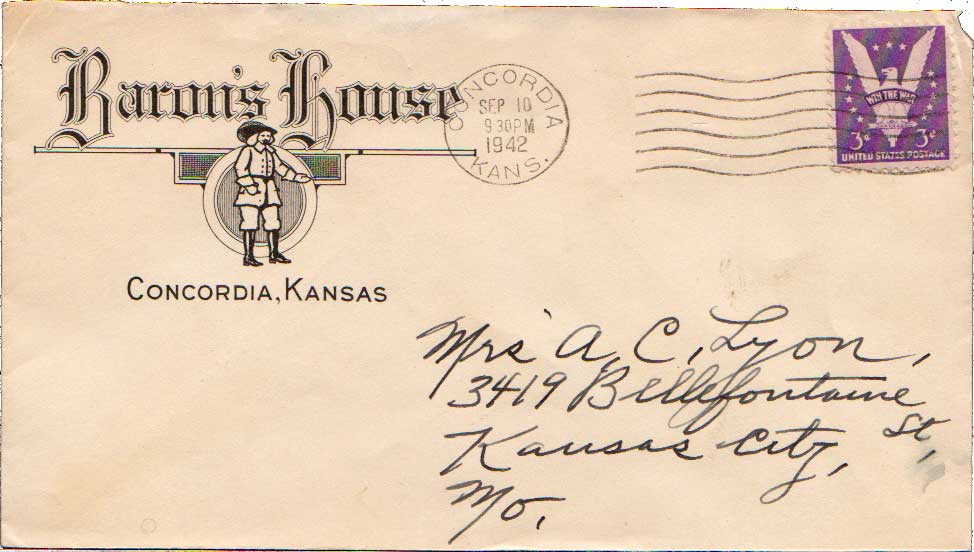 Baron's House
CONCORDIA, KANSAS
CONCORDIA
SEP 10
9 30 PM
1942
KANS.
WIN THE WAR
3¢ 3¢
UNITED STATES POSTAGE
Mrs A. C. Lyon,
3419 Bellefontaine St,
Kansas City,
Mo.